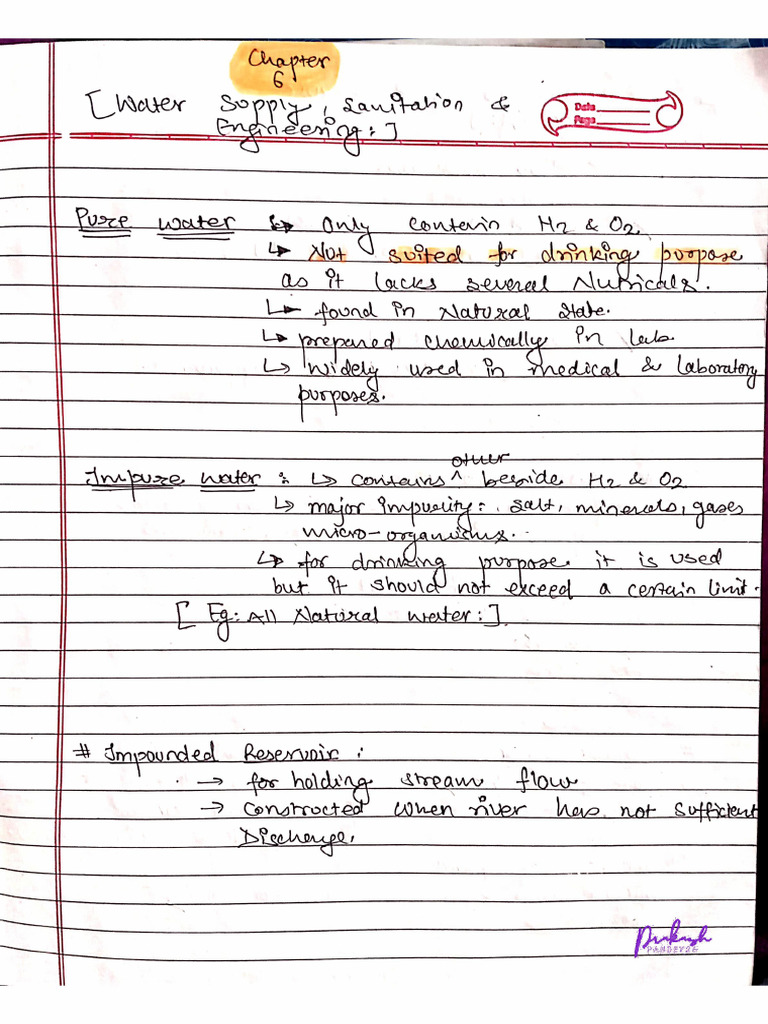 Chapter
6
[Water Supply, Sanitation &
Engineering:]
Date
Page
Pure water :↳ Only contain H2 & O2
↳ Not suited for drinking purpose
as it lacks several Nutricals.
↳ found in Natural state.
↳ prepared chemically in lab
↳ widely used in medical & laboratory
purposes.
other
Impure water : ↳ contains ^ beside H2 & O2
↳ major impurity: salt, minerals, gases
micro-organisms.
↳ for drinking purpose it is used
but it should not exceed a certain limit.
[Eg: All Natural water:].
# Impounded Reservoir :
→ for holding stream flow
→ constructed when river has not sufficient
Discharge.
Prakash
PANDEY24